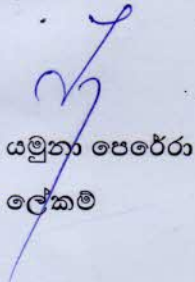 යමුනා පෙරේරා
ලේකම්